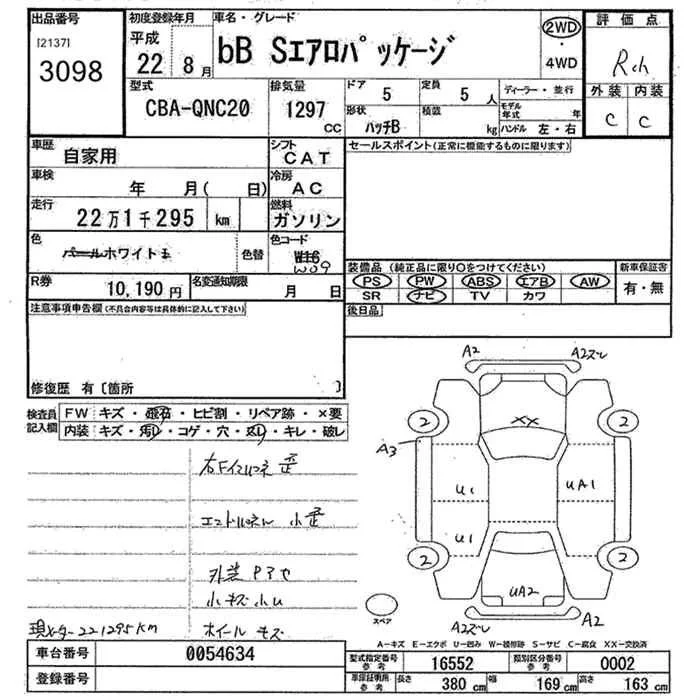 出品番号 初度登録年月 車名・グレード 2WD 評価点
[2137] 平成 ・
3098 22 8月 bB Sエアロパッケージ 4WD Rch
型式 排気量 ドア 定員 ディーラー・並行 外装 内装
CBA-QNC20 1297 CC 5 5人 モデル年式 年 C C
形状 積載
ハッチB kg ハンドル 左・右
車歴 自家用 シフト CAT セールスポイント(正常に機能するものに限ります)
車検 年 月( 日) 冷房 AC
走行 22万1千295 km 燃料 ガソリン
色 パールホワイトⅡ 色替 色コード W16
W09
装備品(純正品に限り○をつけてください) 新車保証書
R券 10,190円 名変通知期限 月 日 PS PW ABS エアB AW 有・無
SR ナビ TV カワ
注意事項申告欄(不具合内容等は具体的に記入して下さい) 後日品
修復歴 有〔箇所 〕
検査員 FW キズ・飛石・ヒビ割・リペア跡・×要
記入欄 内装 キズ・汚レ・コゲ・穴・スレ・キレ・破レ
A2 A2ズレ
2 XX 2
A3
U1 UA1
U1
2 2
UA2
A2ズレ A2
スペア
右Fインパネ 歪
エンドパネル 小歪
外装
小キズ小U
現メーター221295KM ホイールキズ
A-キズ E-エクボ U-凹み W-補修跡 S-サビ C-腐食 XX-交換済
車台番号 0054634 型式指定番号 参考 16552 類別区分番号 参考 0002
登録番号 車庫証明用 参考 長さ 380cm 幅 169cm 高さ 163cm